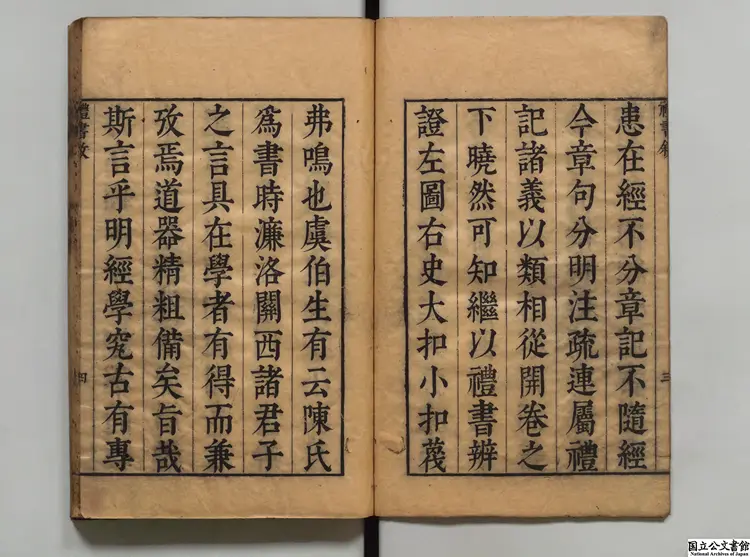 患在經不分章記不隨經
今章句分明注疏連屬禮
記諸義以類相從開卷之
下曉然可知繼以禮書辨
證左圖右史大扣小扣蔑
三
弗鳴也虞伯生有云陳氏
爲書時濂洛關西諸君子
之言具在學者有得而兼
攷焉道器精粗備矣旨哉
斯言乎明經學究古有專
禮書敘
四
国立公文書館
National Archives of Japan